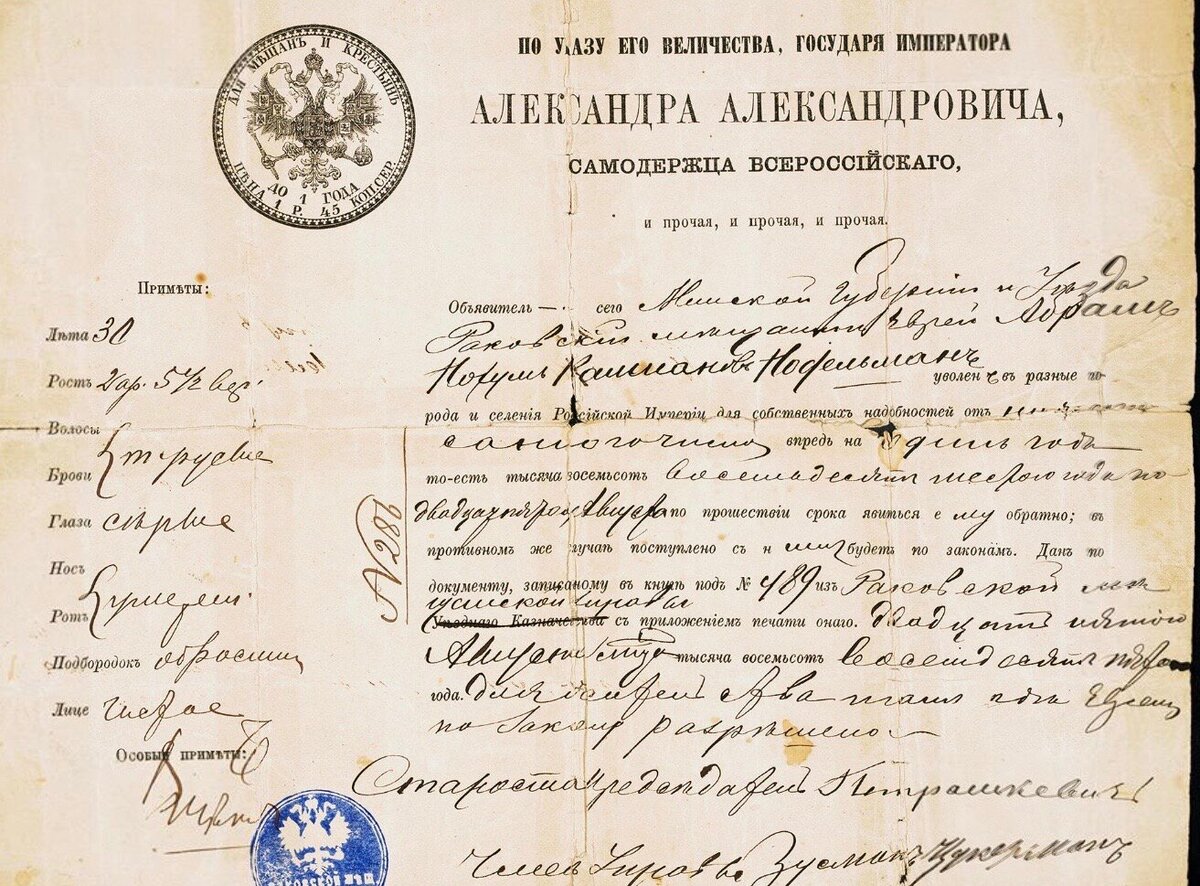 ДЛЯ МѢЩАНЪ И КРЕСТЬЯНЪ
ДО 1 ГОДА
ЦѢНА 1 Р. 45 КОП. СЕР.
ПО УКАЗУ ЕГО ВЕЛИЧЕСТВА, ГОСУДАРЯ ИМПЕРАТОРА
АЛЕКСАНДРА АЛЕКСАНДРОВИЧА,
САМОДЕРЖЦА ВСЕРОССІЙСКАГО,
и прочая, и прочая, и прочая.
Примѣты:
Лѣта 30
Ростъ 2 ар. 5 1/2 вер.
Волосы
Брови т. русые
Глаза сѣрые
Носъ
Ротъ умерен
Подбородокъ обросши
Лице чистое
Особыя примѣты:
N 286
Объявитель сего Минской Губерніи и Уѣзда
Раковскій мѣщанинъ Еврей Абрамъ
Нохумъ Нофельманъ уволенъ въ разные го
рода и селенія Россійской Имперіи для собственныхъ надобностей отъ
числа впредь на одинъ годъ
то-есть тысяча восемьсотъ восемьдесятъ шестого года по
двадцать пятое Августа по прошествіи срока явиться ему обратно; въ
противномъ же случаѣ поступлено съ нимъ будетъ по законамъ. Данъ по
документу, записаному въ книгѣ подъ № 489 изъ Раковской мѣ
щанской Управы
Уѣзднаго Казначейства съ приложеніемъ печати онаго. двадцать пятого
Августа тысяча восемьсотъ восемьдесятъ пятого
года. Для жительства тамъ гдѣ Евреямъ
по Закону разрѣшено
Староста Предсѣдатель Петрашкевичъ
Членъ Управы Зусманъ Цукерманъ